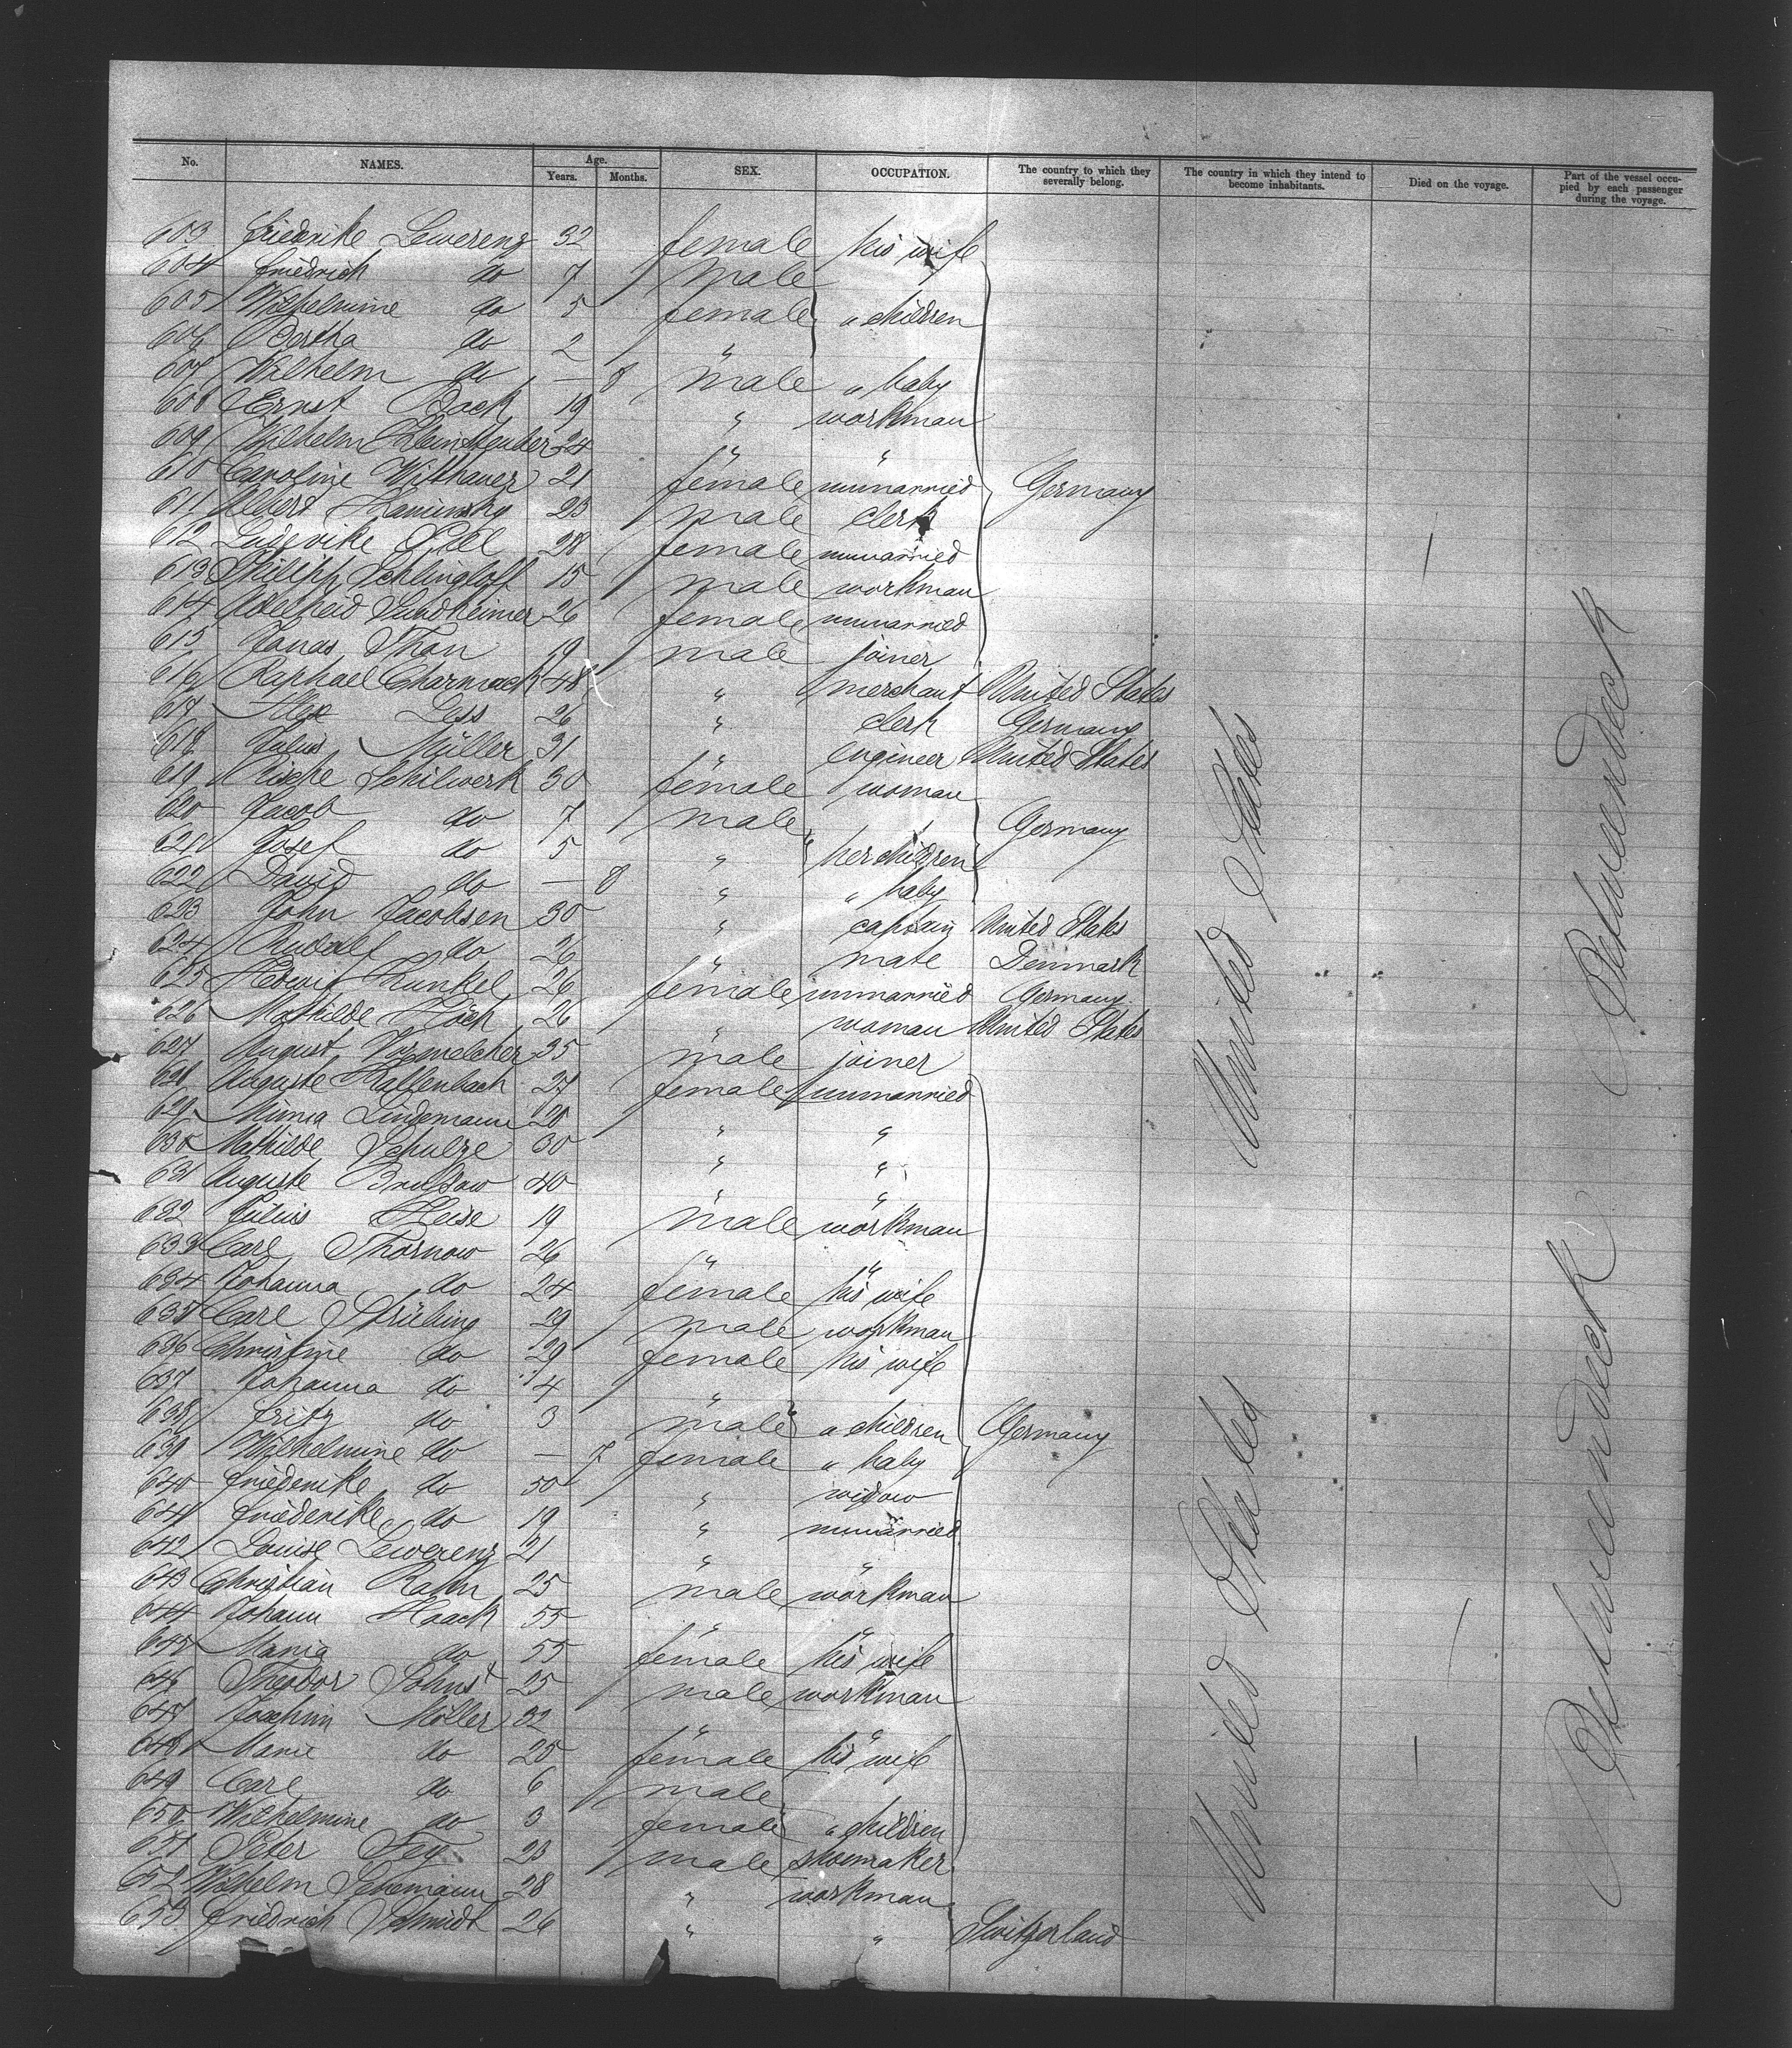 No. NAMES. Age. Years. Months. SEX. OCCUPATION. The country to which they severally belong. The country in which they intend to become inhabitants. Died on the voyage. Part of the vessel occupied by each passenger during the voyage.
603 Friedrike Lewerenz 32 female his wife
604 Friedrich do 7 male
605 Wilhelmine do 5 female " children
606 Bertha do 2 "
607 Wilhelm do — 8 male " baby
608 Ernst Bock 19 " workman
609 Wilhelm 24 " "
610 Caroline Witthauer 21 female unmarried Germany
611 Albert Kaminsky 23 male clerk
612 Ludovike 28 female unmarried
613 Philipp Schlingloff 15 male workman
614 Adelheid Sundheimer 26 female unmarried
615 Jonas Than 19 male joiner
616 Raphael Charmack 48 " merchant United States
617 Alex Less 26 " clerk Germany
618 Julius Müller 31 " engineer United States
619 Schilwerk 30 female woman
620 Jacob do 7 male Germany
621 Josef do 5 " her children
622 David do — 8 " " baby
623 John Jacobsen 30 " captain United States
624 Rudolf do 26 " mate Denmark
625 Hedwig Kunkel 26 female unmarried Germany
626 Mathilde Höch 26 " woman United States
627 August 35 male joiner
628 Auguste Kallenbach 27 female unmarried
629 Minna Lindemann 20 " "
630 Mathilde Schulze 30 " "
631 Auguste 40 " "
632 Julius Heise 19 male workman
633 Carl Thornow 26 " "
634 Johanna do 24 female his wife
635 Carl Strübing 29 male workman
636 Christine do 29 female his wife
637 Johanna do 4 "
638 Fritz do 3 male " children Germany
639 Wilhelmine do — 7 female " baby
640 Friederike do 50 " widow
641 Friederike do 19 " unmarried
642 Louise Lewerenz 21 " "
643 Christian Rahn 25 male workman
644 Johann Haack 55 " "
645 Maria do 55 female his wife
646 Theodor 25 male workman
647 Joachim Möller 32 " "
648 Marie do 25 female his wife
649 Carl do 6 male
650 Wilhelmine do 3 female " children
651 Peter Fey 23 male shoemaker
652 Wilhelm 28 " workman
653 Friedrich Schmidt 26 " " Switzerland
United States
United States
Betweendeck
Betweendeck